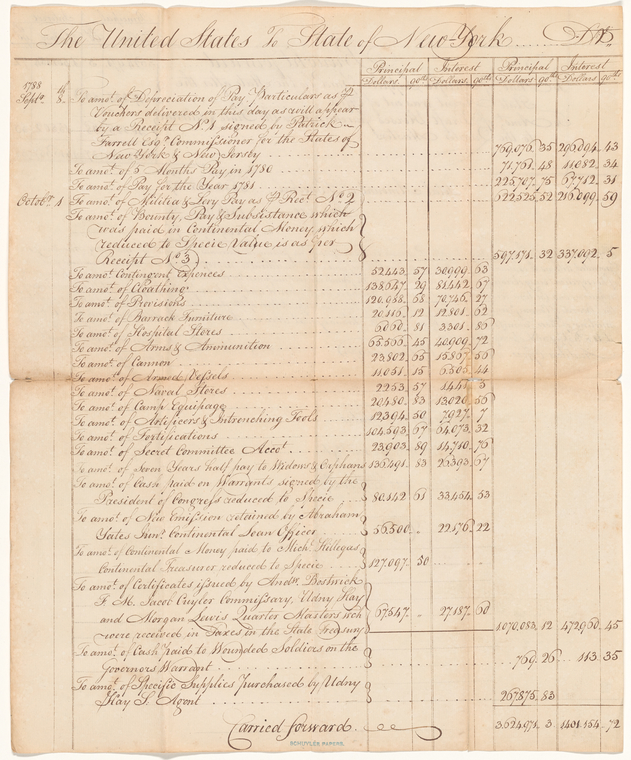 The United States To State of New-York ........ Dr.
Principal Interest Principal Interest
Dollars 90ths Dollars 90ths Dollars 90ths Dollars 90ths
1788
Septr. 8 To amot. of Depreciation of Pay Particulars as pr
Vouchers delivered in this day as will appear
by a Receipt No. 1 signed by Patrick
Farrell Esqr. Commissioner for the States of
New York & New Jersey 769,076 35 296,094 43
To amot. of 5 Months Pay in 1780 71,761 48 11,082 34
To amot. of Pay for the Year 1781 225,707 75 67,712 31
Octobr. 1 To amot. of Militia & Levy Pay as pr Rect. No. 2 622,525 52 216,099 59
To amot. of Bounty, Pay & Subsistance which
was paid in Continental Money, which
reduced to Specie Value is as per
Receipt No. 3 597,171 32 337,092 5
To amot. Contingent Expences 52443 57 30,999 63
To amot. of Cloathing 138,647 29 81,442 67
To amot. of Provisions 70,746 27
To amot. of Barrack Furniture 20,116 12 12,801 62
To amot. of Hospital Stores 81 3301 86
To amot. of Arms & Ammunition 65,566 45 40,909 72
To amot. of Cannon 23,802 65 15,867 56
To amot. of Armed Vessels 11,051 15 44
To amot. of Naval Stores 2253 57 5
To amot. of Camp Equipage 20,480 83 13,026 56
To amot. of Artificers & Intrenching Tools 12394 50 7,927 7
To amot. of Fortifications 104,593 67 64,073 32
To amot. of Secret Committee Accot. 23,903 89 14,710 76
To amot. of Seven Years half pay to Widows & Orphans 136,491 83 26,393 67
To amot. of Cash paid on Warrants signed by the
President of Congress reduced to Specie 80,142 61 33,454 53
To amot. of New Emission retained by Abraham
Yates Junr. Continental Loan Officer 56,500 22,176 22
To amot. of Continental Money paid to Mich. Hillegas
Continental Treasurer reduced to Specie 127,097 50
To amot. of Certificates issued by Andw. Bostwick
F. M. Jacob Cuyler Commissary, Udny Hay
and Morgan Lewis Quarter Masters wch
were received in Taxes in the State Treasury 67,547 27,187 60 1,070,083 12 472,960 45
To amot. of Cash Paid to Wounded Soldiers on the
Governors Warrant 769 26 113 35
To amot. of Specific Supplies Purchased by Udny
Hay S. Agent 267,875 53
Carried forward 3,624,971 3 1,401,154 72
SCHUYLER PAPERS.